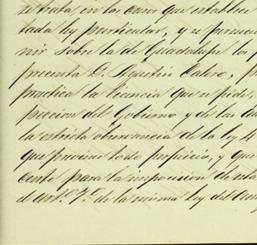 se trata, en los casos que establece
tada ley particular, y se permite
nir sobre la de Guadalupe los p
presenta D. Agustin Calero, p
practica la licencia que se pide,
pecion del Gobierno y de las au
la estricta observancia de la ley 4
que previene todo perjuicio, y que
cente para la imposicion de esta
el art.º 7.º de la misma ley del